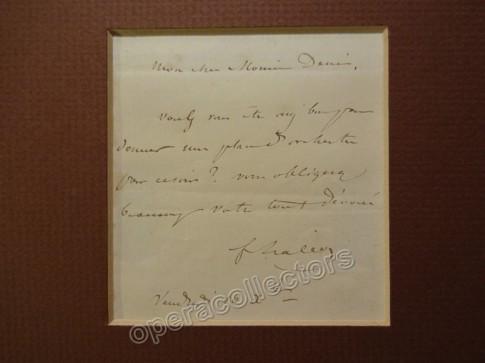 Mon cher Monsieur Denis,
Voulez vous être assez bon pour
donner une place d'orchestre
pour ce soir ? vous obligerez
beaucoup votre tout dévoué
f halévy
Vendredi
operacollectors